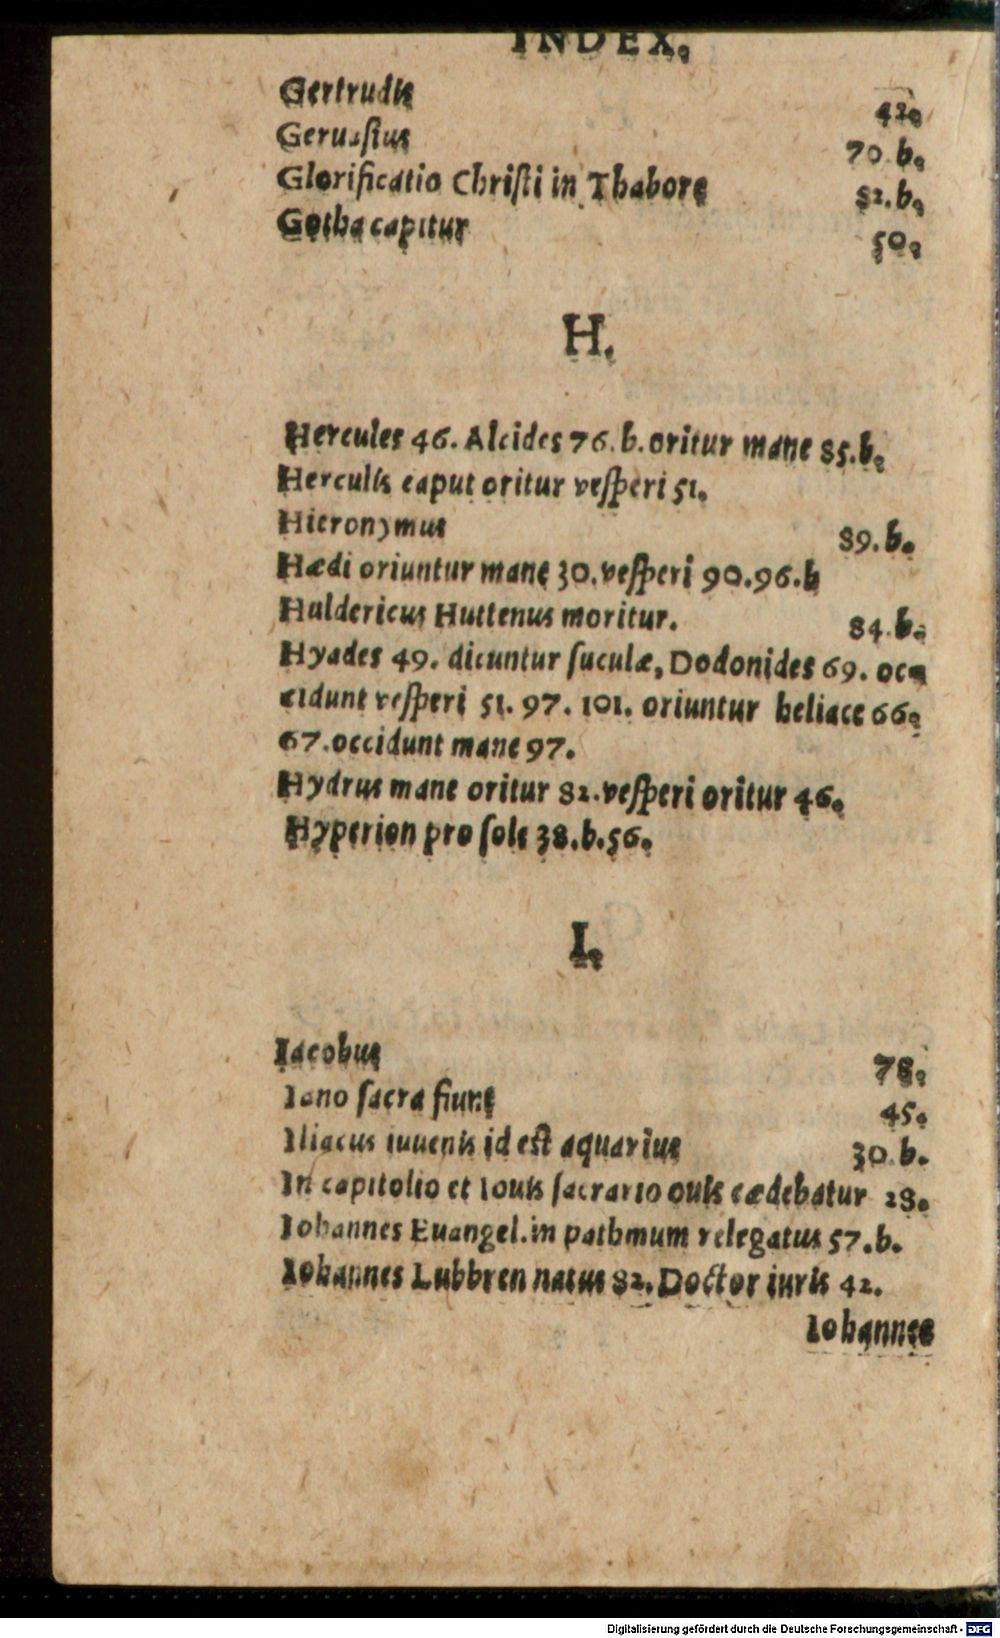 INDEX.
Gertrudis 42.
Geruasius 70 b.
Glorificatio Christi in Thabore 82.b.
Gotha capitur 50.
H.
Hercules 46. Alcides 76.b. oritur mane 85.b.
Herculis caput oritur vesperi 51.
Hieronymus 89.b.
Hædi oriuntur mane 30. vesperi 90.96.b
Huldericus Huttenus moritur. 84.b.
Hyades 49. dicuntur suculæ, Dodonides 69. oc=
cidunt vesperi 51. 97. 101. oriuntur heliace 66.
67. occidunt mane 97.
Hydrus mane oritur 82. vesperi oritur 46.
Hyperion pro sole 38.b.56.
I.
Iacobus 78.
Iano sacra fiunt 45.
Iliacus iuuenis id est aquarius 30 b.
In capitolio et Iouis sacrario ouis cædebatur 28.
Iohannes Euangel. in pathmum relegatus 57.b.
Iohannes Lubbren natus 82. Doctor iuris 42.
Iohannes
Digitalisierung gefördert durch die Deutsche Forschungsgemeinschaft - DFG